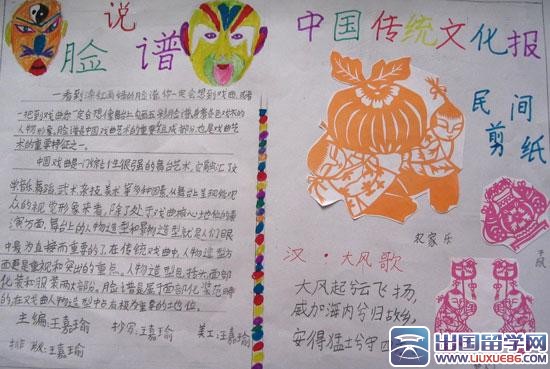 说
脸谱
一看到浓红画绿的脸谱你一定会想到戏曲,或者
人物形象,脸谱是中国戏曲艺术的重要组成部分,也是戏曲艺
术的重要特征之一。
中国戏曲是一门综合性很强的舞台艺术,它融汇了
学音乐舞蹈,武术杂技,美术等多种因素,从舞台呈现给观
众的视觉形象来看,除了处于戏曲核心地位的表
演方面,舞台上的人物造型和景物造型就是人们眼
中最为直接而重要的了,在传统戏曲中,人物造型方
面更是重视和突出的重点。人物造型包括头面部
化装和服装两大部分。脸谱谱是属于面部化装范畴
的,在戏曲人物造型中占有极为重要的地位。
主编:王嘉瑜 抄写:王嘉瑜 美工:王嘉瑜
排版:王嘉瑜
中国传统文化报
民间
剪纸
农家乐
汉·大风歌
大风起兮云飞扬,
威加海内兮归故乡,
安得猛士兮守四
出国留学网
WWW.LIUXUE86.COM